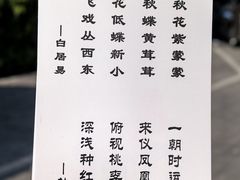 秋花紫蒙蒙
秋蝶黄茸茸
花低蝶新小
飞戏丛西东
—白居易
一朝时
来仪凤凰
俯视桃李
深浅种红